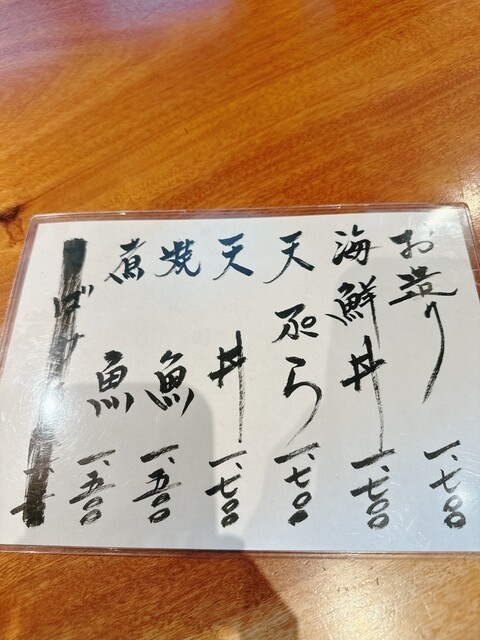 お造り 一、七〇〇
海鮮丼 一、七〇〇
天ぷら 一、七〇〇
天丼 一、七〇〇
焼魚 一、五〇〇
煮魚 一、五〇〇